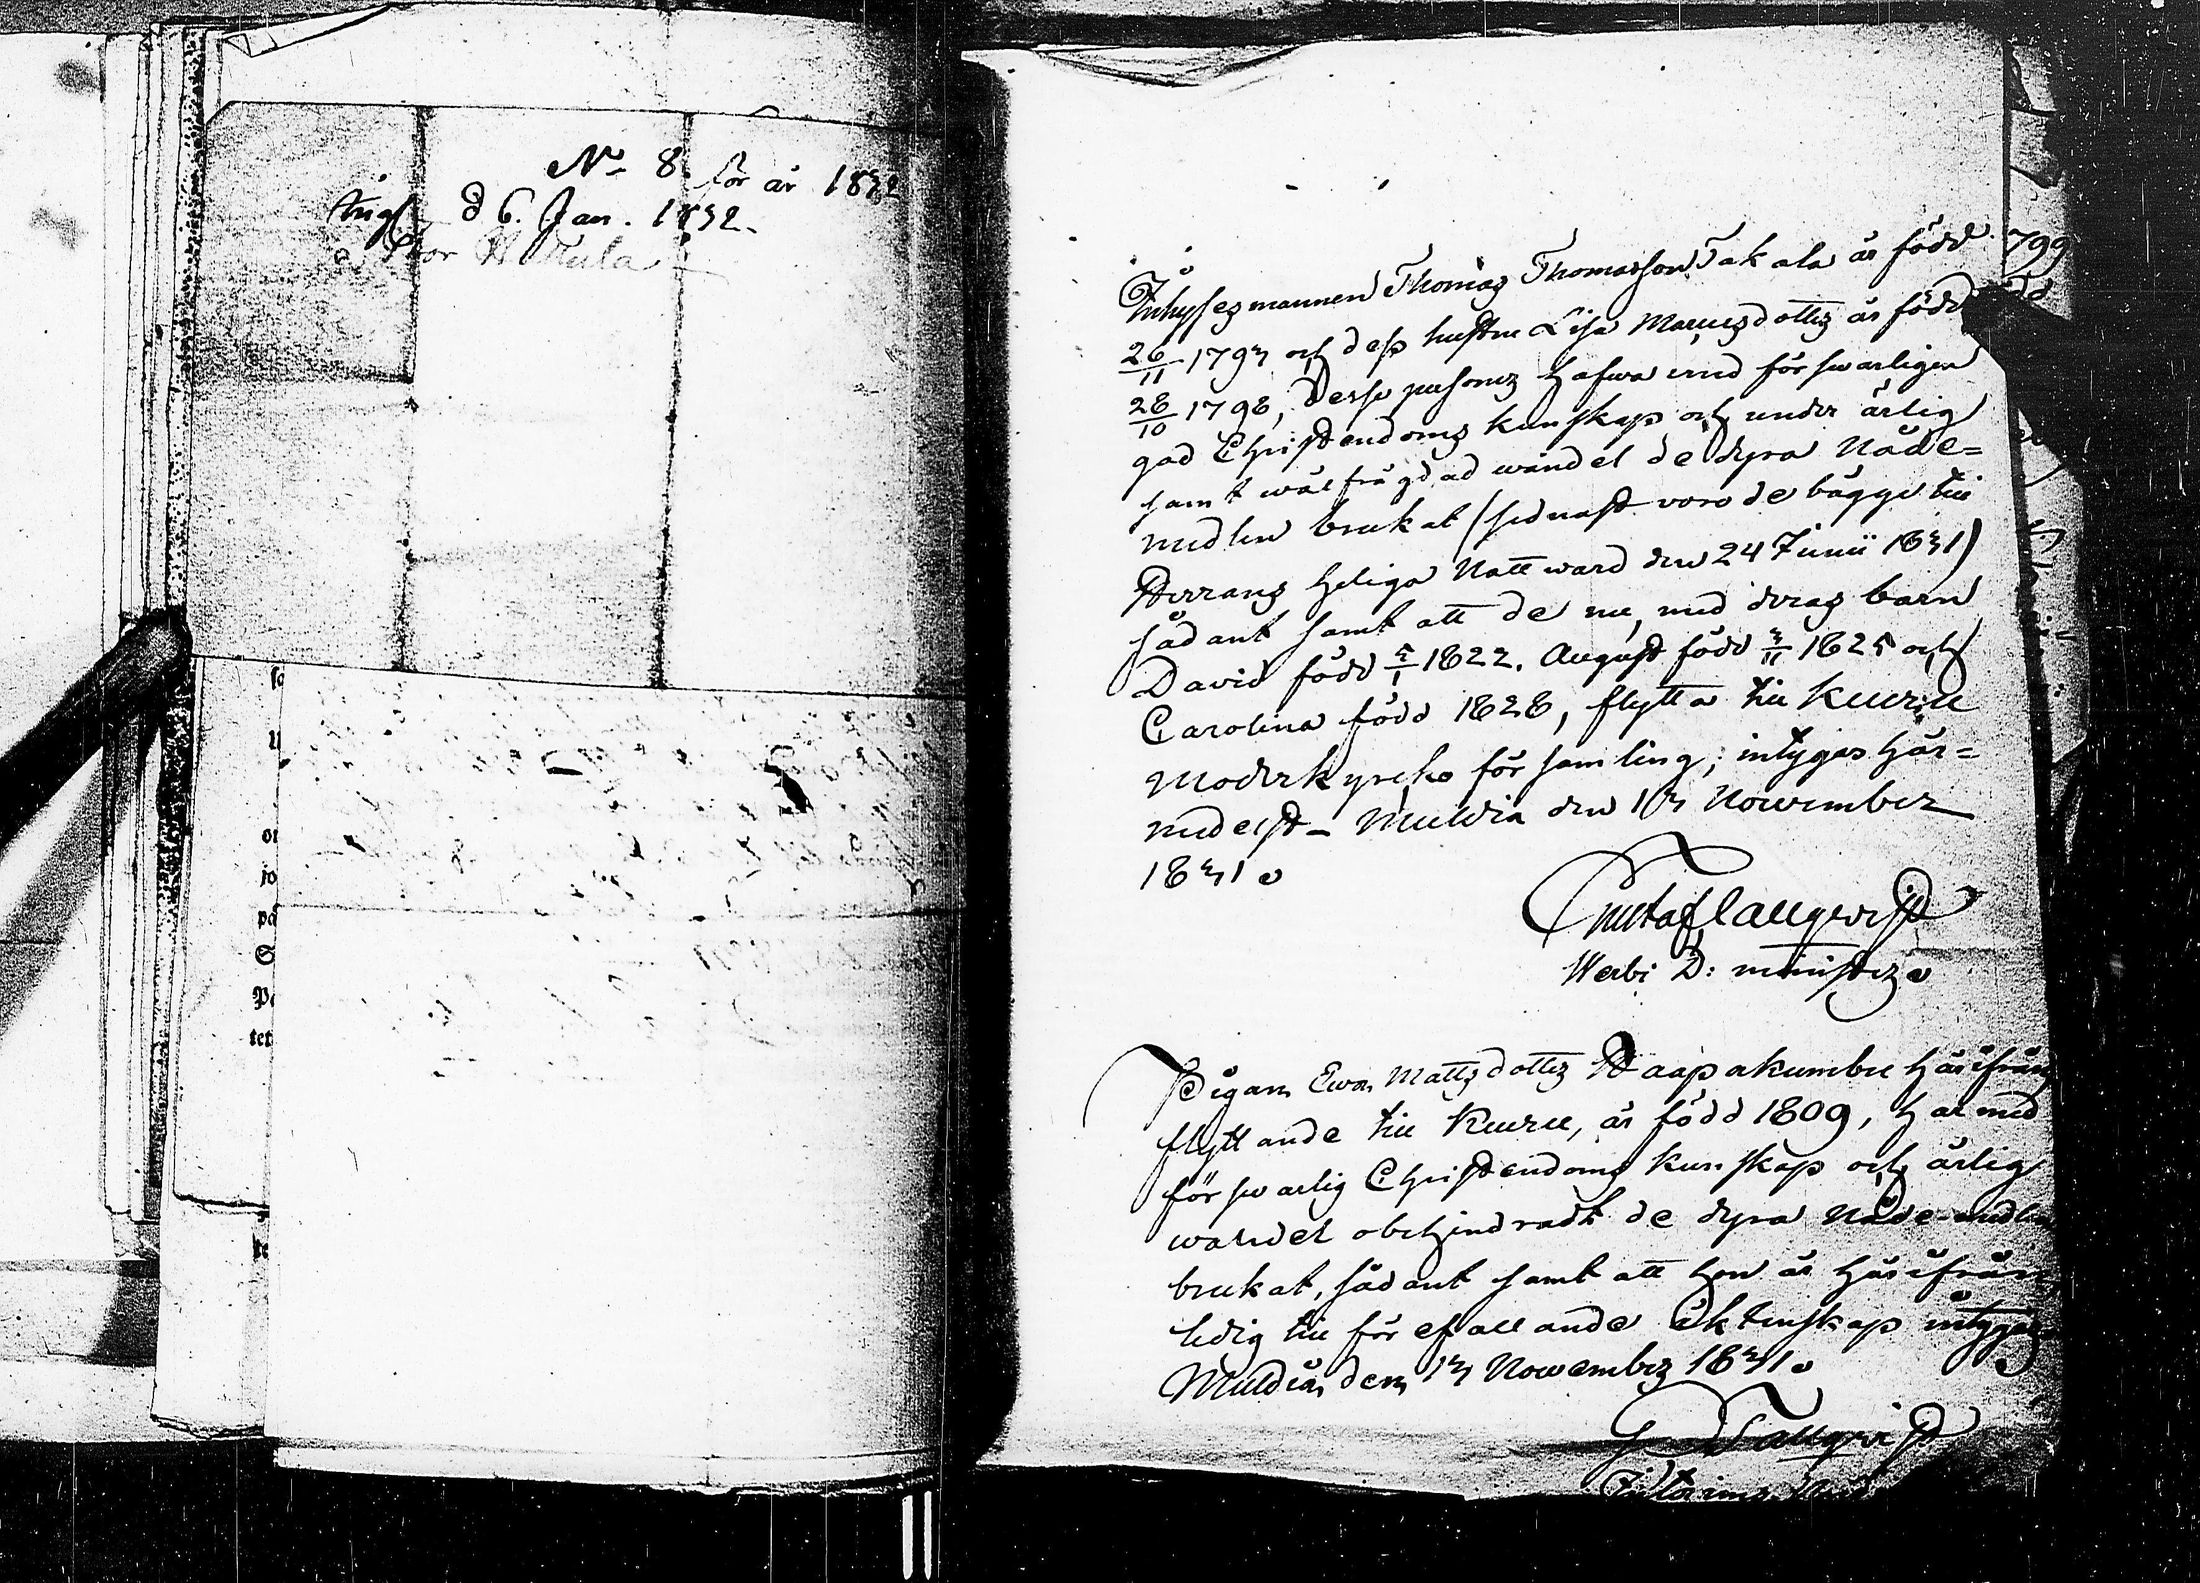 No 8 för år 1832
d 6. Jan. 1832.
Stor
Inhysesmannen Thomas Thomasson Takala är född
26/11 1793 och dess hustru Lisa Mariusdotter är född
28/10 1798, Desse personer hafwa med förswarligen
god Christendoms kunskap och under ärlig
samt wälfrägdad wandel de dyra Nåde-
medlen brukat (sednast voro de bägge till
Herrans heliga Nattward den 24 Junii 1831)
sådant samt att de nu, med deras barn
David född 5/1 1822. August född 3/11 1825 och
Carolina född 1828, flytta till Kuru
Moderkyrko församling, intygas här-
medelst - Muldia den 13 Nowember
1831.
Gustaf Tallqwist
Verbi D: minister.
Pigan Ewa Mattsdotter Haapakumbu härifrån
flyttande till Kuru, är född 1809, har med
förswarlig Christendoms kunskap och ärlig
wandel obehindradt de dyra Nåde-medlen
brukat, sådant samt att hon är härifrån
ledig till förefallande äktenskap intygas
Muldia den 13 November 1831.
G Tallqwist
799
so
or
jo
på
S
tet